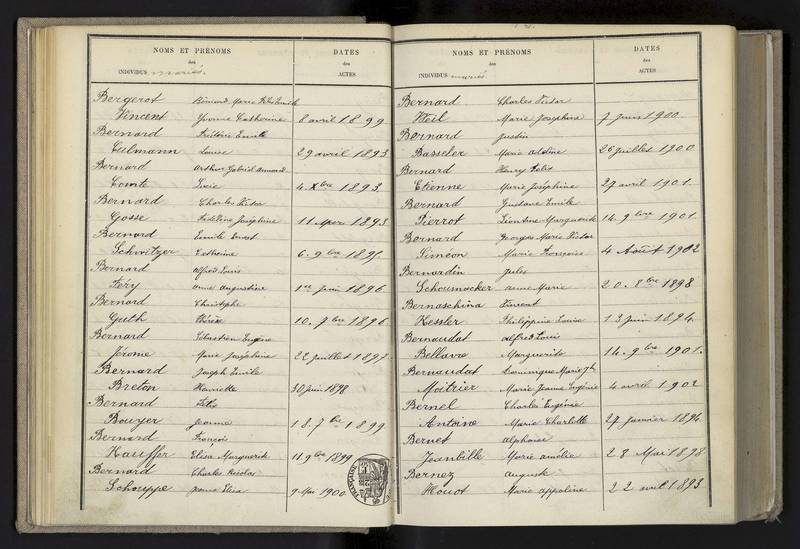 NOMS ET PRÉNOMS
des
INDIVIDUS mariés.
DATES
des
ACTES
Bergerot Marie Emile
Vincent Yvonne Catherine 8 avril 1899
Bernard Frédéric Emile
Culmann Louise 29 avril 1893
Bernard Arthur Gabriel Armand
Comte Lucie 4 Xbre 1893
Bernard Charles Victor
Gosse Joséphine 11 1893
Bernard Emile Ernest
Schvitzer Catherine 6. 9bre 1895
Bernard Alfred Louis
Féry Anne Augustine 1er Juin 1896
Bernard Christophe
Guth Thérèse 10. 7bre 1896
Bernard Sébastien Eugène
Jérome Marie Joséphine 22 juillet 1897
Bernard Joseph Emile
Breton Henriette 30 Juin 1898
Bernard Félix
Bouyer Jeanne 18. 7bre 1899
Bernard François
Hauffer Elisa Marguerite 11 9bre 1899
Bernard Charles Nicolas
Schouppe Elisa 9 Mai 1900
NOMS ET PRÉNOMS
des
INDIVIDUS mariés.
DATES
des
ACTES
Bernard Charles Victor
Weil Marie Joséphine 7 juin 1900
Bernard Justin
Basseler Marie Adeline 26 juillet 1900
Bernard Henry Félix
Etienne Marie Joséphine 27 avril 1901.
Bernard Gustave Emile
Pierrot Léontine Marguerite 14. 9bre 1901.
Bernard Georges Marie Victor
Siméon Marie Françoise 4 Août 1902
Bernardin Jules
Schoumacker Anne Marie 20. 8bre 1898
Bernaschina Vincent
Kessler Philippine Louise 13 Juin 1894.
Bernaudat Alfred Louis
Bellavo Marguerite 14. 9bre 1901.
Bernaudat Dominique Marie Jh
Moitrier Marie Jeanne Eugénie 4 avril 1902
Bernel Charles Eugène
Antoine Marie Charlotte 27 janvier 1894
Bernet Alphonse
Jeanbille Marie Amélie 28 Mai 1898
Bernez Auguste
Houot Marie Appoline 22 avril 1893